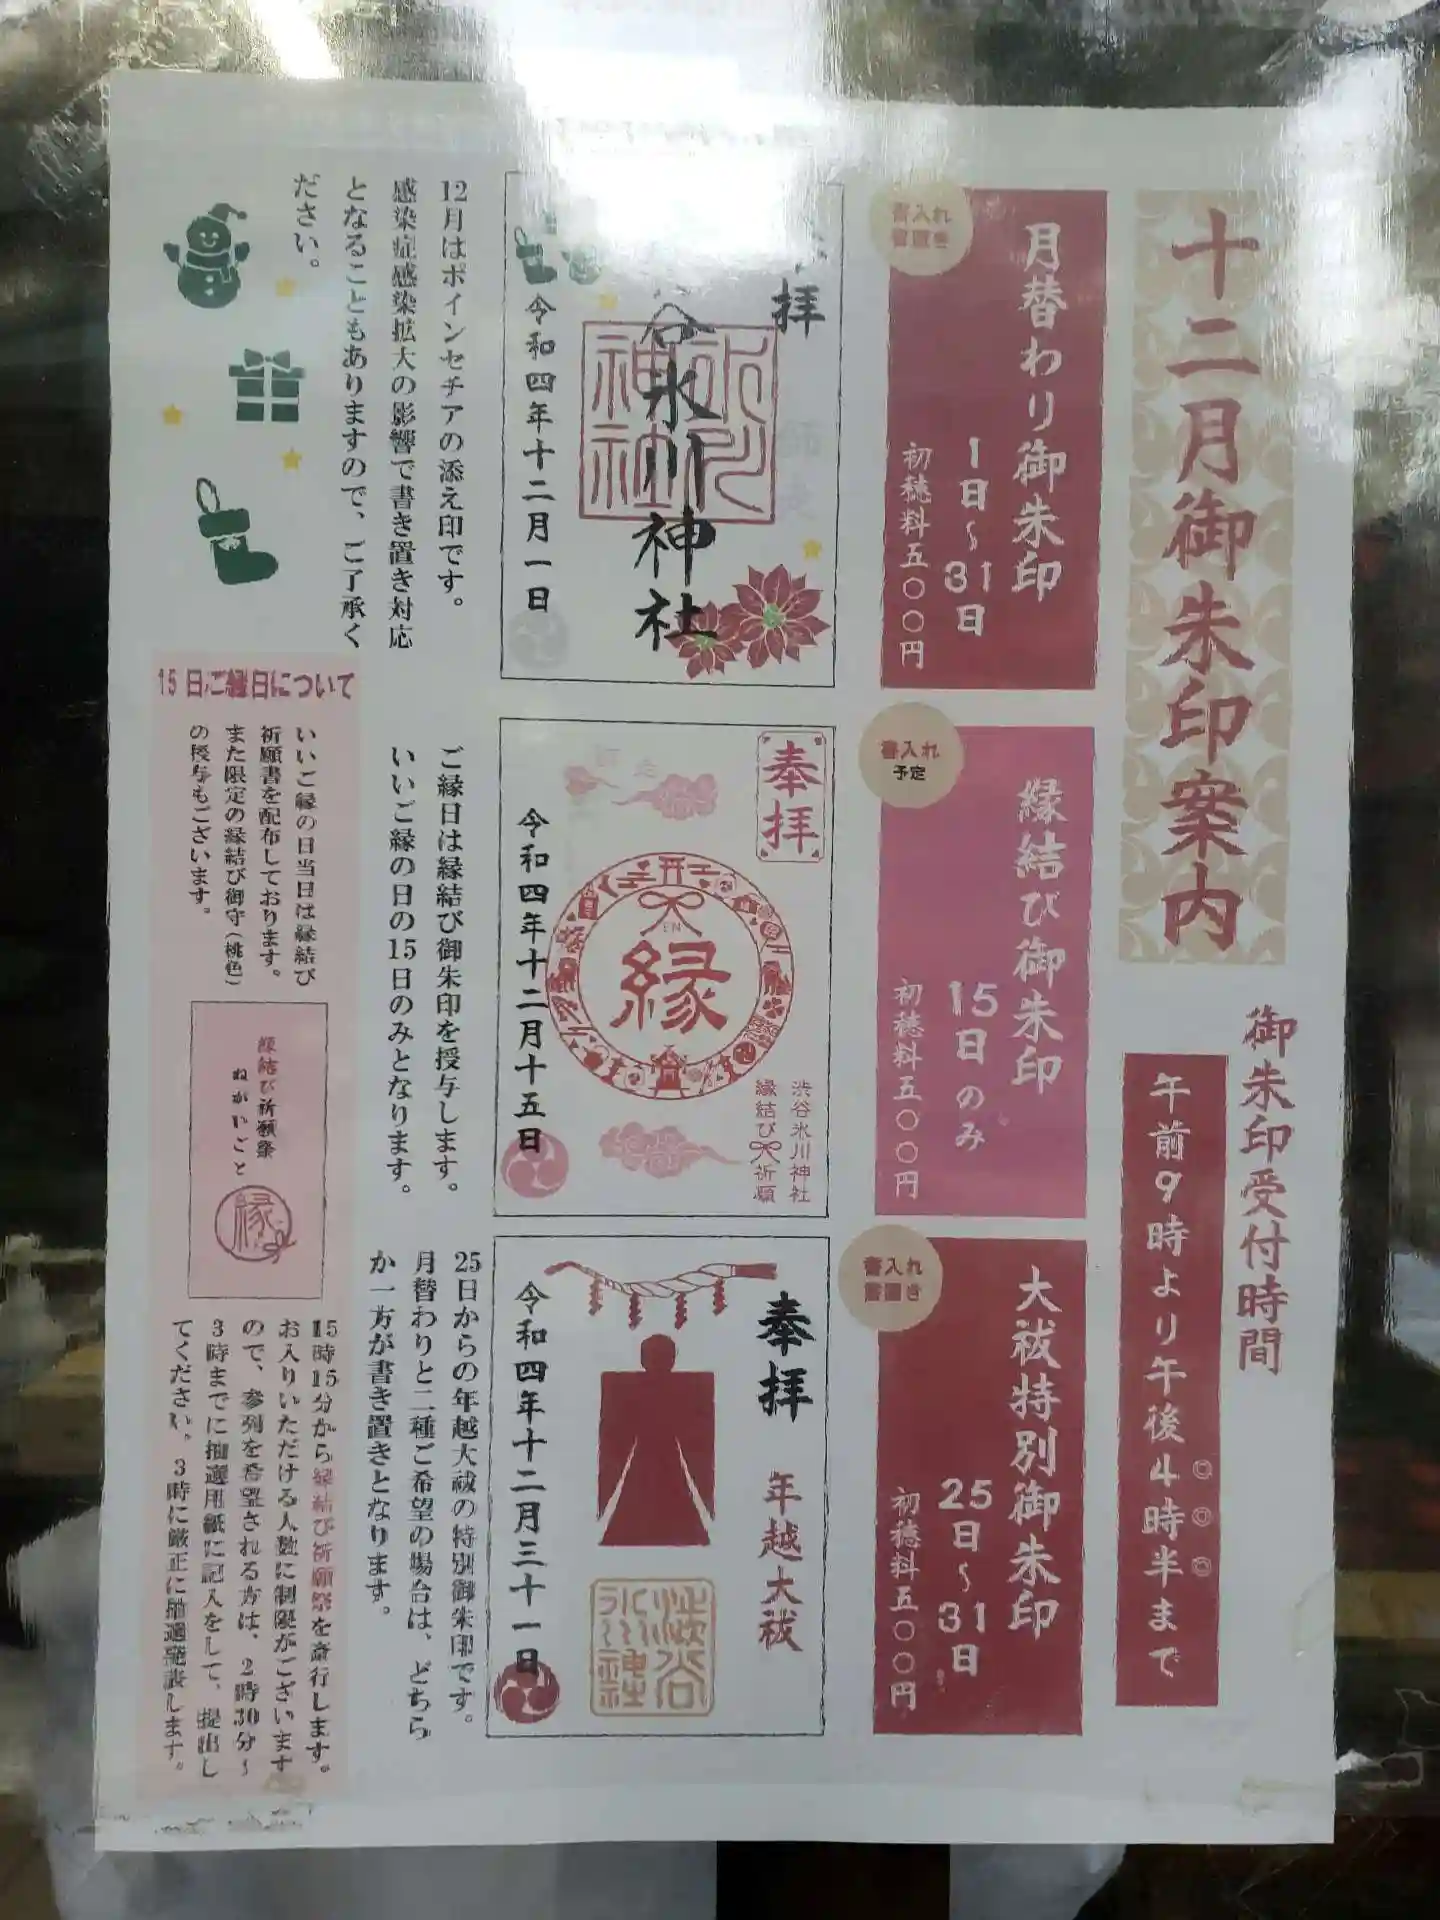 十二月御朱印案内
御朱印受付時間
午前9時より午後4時半まで
書入れ
書置き
月替わり御朱印
1日～31日
初穂料五〇〇円
拝
谷氷川神社
氷川神社
令和四年十二月一日
12月はポインセチアの添え印です。
感染症感染拡大の影響で書き置き対応
となることもありますので、ご了承く
ださい。
書入れ
予定
縁結び御朱印
15日のみ
初穂料五〇〇円
奉拝
師走
EN
縁
渋谷氷川神社
縁結び祈願
令和四年十二月十五日
ご縁日は縁結び御朱印を授与します。
いいご縁の日の15日のみとなります。
書入れ
書置き
大祓特別御朱印
25日～31日
初穂料五〇〇円
奉拝
年越大祓
令和四年十二月三十一日
25日からの年越大祓の特別御朱印です。
月替わりと二種ご希望の場合は、どちら
か一方が書き置きとなります。
15日ご縁日について
いいご縁の日当日は縁結び
祈願書を配布しております。
また限定の縁結び御守（桃色）
の授与もございます。
縁結び祈願祭
ねがいごと
縁
15時15分から縁結び祈願祭を斎行します。
お入りいただける人数に制限がございます
ので、参列を希望される方は、2時30分～
3時までに抽選用紙に記入をして、提出し
てください。3時に厳正に抽選発表します。